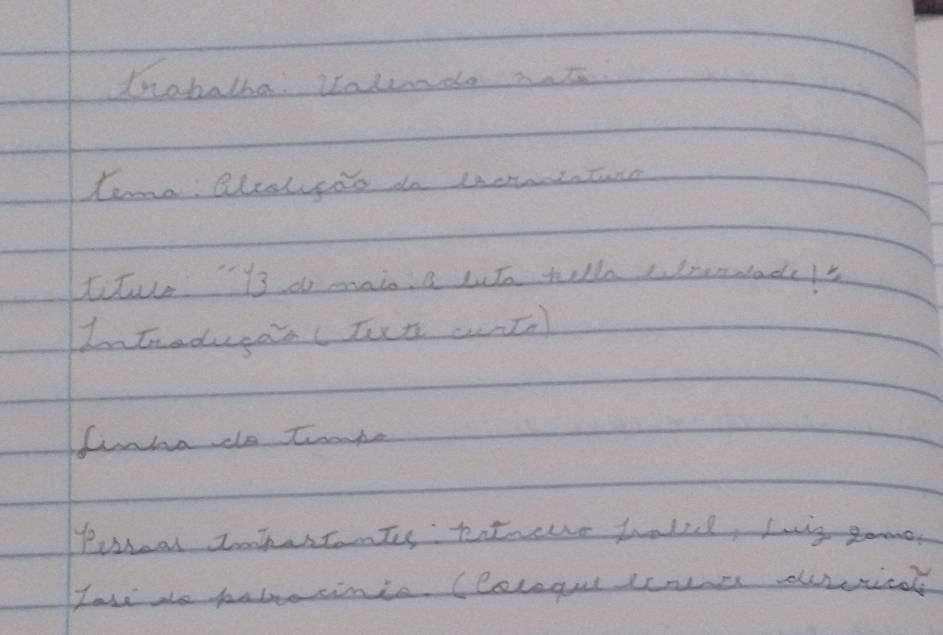 trabalho: Valendo nota
tema: Abolição da escravatura
titulo: "13 de maio: a luta pella liberdade!"
Introdução (Texto curto)
Linha do Tempo
Pessoas Importantes: Luiz gama,
José do patrocinio. (Coloque descrição